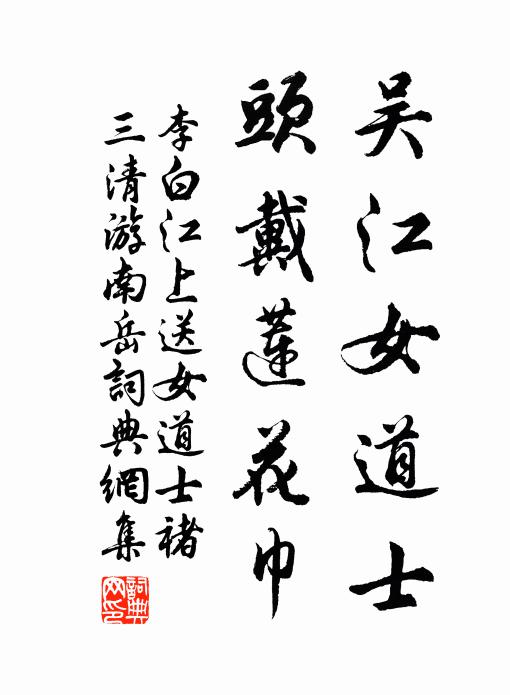 吴江女道士
頭戴蓮花巾
李白江上送女道士褚
三清游南岳詞典網集
詞典网印